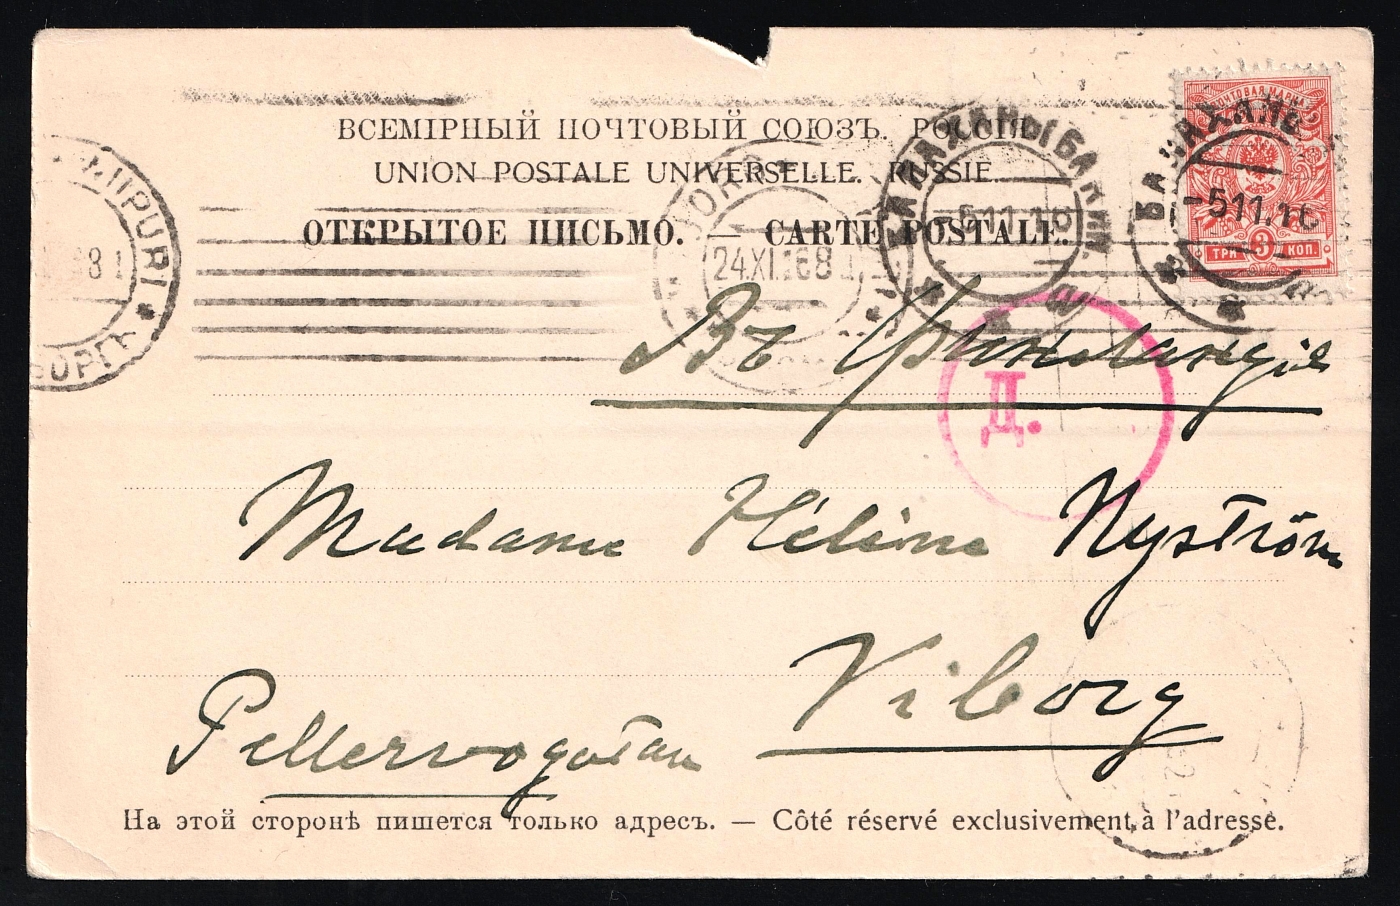 ВСЕМІРНЫЙ ПОЧТОВЫЙ СОЮЗЪ. РОССІЯ.
UNION POSTALE UNIVERSELLE. RUSSIE.
ОТКРЫТОЕ ПИСЬМО. — CARTE POSTALE.
ПОЧТОВАЯ МАРКА
ТРИ 3 КОП.
БАЛАХАНЫ БАКИН.
-5.11.16
БАЛАХАНЫ
-5.11.16
24.XI.16 8
8 1
Д.
Въ Финляндію
Madame Hélène Nyström
Viborg
Pellervogatan
На этой сторонѣ пишется только адресъ. — Côté réservé exclusivement à l'adresse.